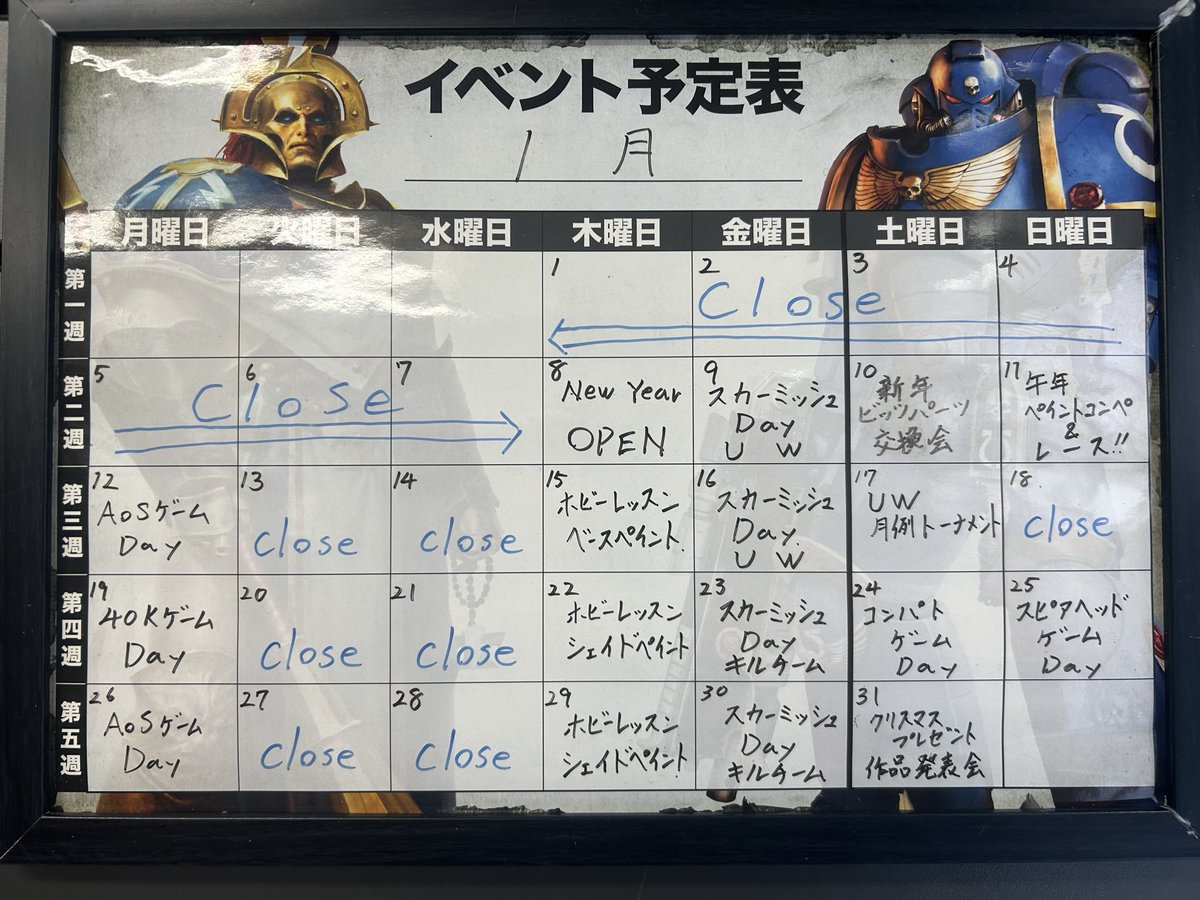 イベント予定表
1月
月曜日 火曜日 水曜日 木曜日 金曜日 土曜日 日曜日
第一週
1
2
3
4
Close
第二週
5
6
7
Close
8
New Year
OPEN
9
スカーミッシュ
Day
UW
10
新年
ビッツパーツ
交換会
11
午年
ペイントコンペ
&
レース!!
第三週
12
AoSゲーム
Day
13
close
14
close
15
ホビーレッスン
ベースペイント.
16
スカーミッシュ
Day.
UW
17
UW
月例トーナメント
18
close
第四週
19
40Kゲーム
Day
20
close
21
close
22
ホビーレッスン
シェイドペイント
23
スカーミッシュ
Day
キルチーム
24
コンパト
ゲーム
Day
25
スピアヘッド
ゲーム
Day
第五週
26
AoSゲーム
Day
27
close
28
close
29
ホビーレッスン
シェイドペイント
30
スカーミッシュ
Day
キルチーム
31
クリスマス
プレゼント
作品発表会